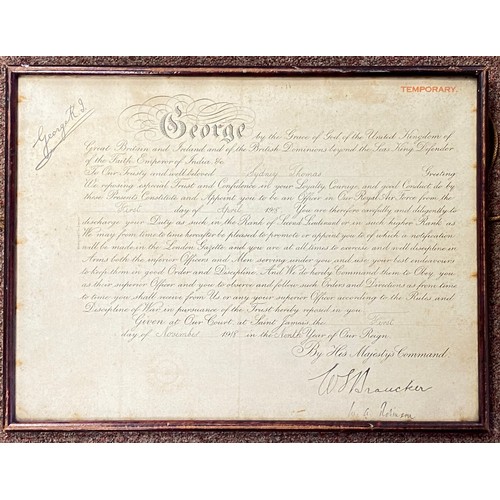 TEMPORARY.
George R.I.
George by the Grace of God of the United Kingdom of
Great Britain and Ireland and of the British Dominions beyond the Seas King, Defender
of the Faith, Emperor of India, &c.
To Our Trusty and well beloved Sydney Thomas Greeting
We reposing especial Trust and Confidence in your Loyalty, Courage, and good Conduct do by
these Presents Constitute and Appoint you to be an Officer in Our Royal Air Force from the
First day of April 1918. You are therefore carefully and diligently to
discharge your Duty as such in the Rank of Second Lieutenant or in such higher Rank as
We may from time to time hereafter be pleased to promote or appoint you to of which a notification
will be made in the London Gazette and you are at all times to exercise and well discipline in
Arms both the inferior Officers and Men serving under you and use your best endeavours
to keep them in good Order and Discipline. And We do hereby Command them to Obey you
as their superior Officer and you to observe and follow such Orders and Directions as from time
to time you shall receive from Us or any your superior Officer according to the Rules and
Discipline of War in pursuance of the Trust hereby reposed in you.
Given at Our Court, at Saint James's, the First
day of November 1918 in the Ninth Year of Our Reign
By His Majesty's Command